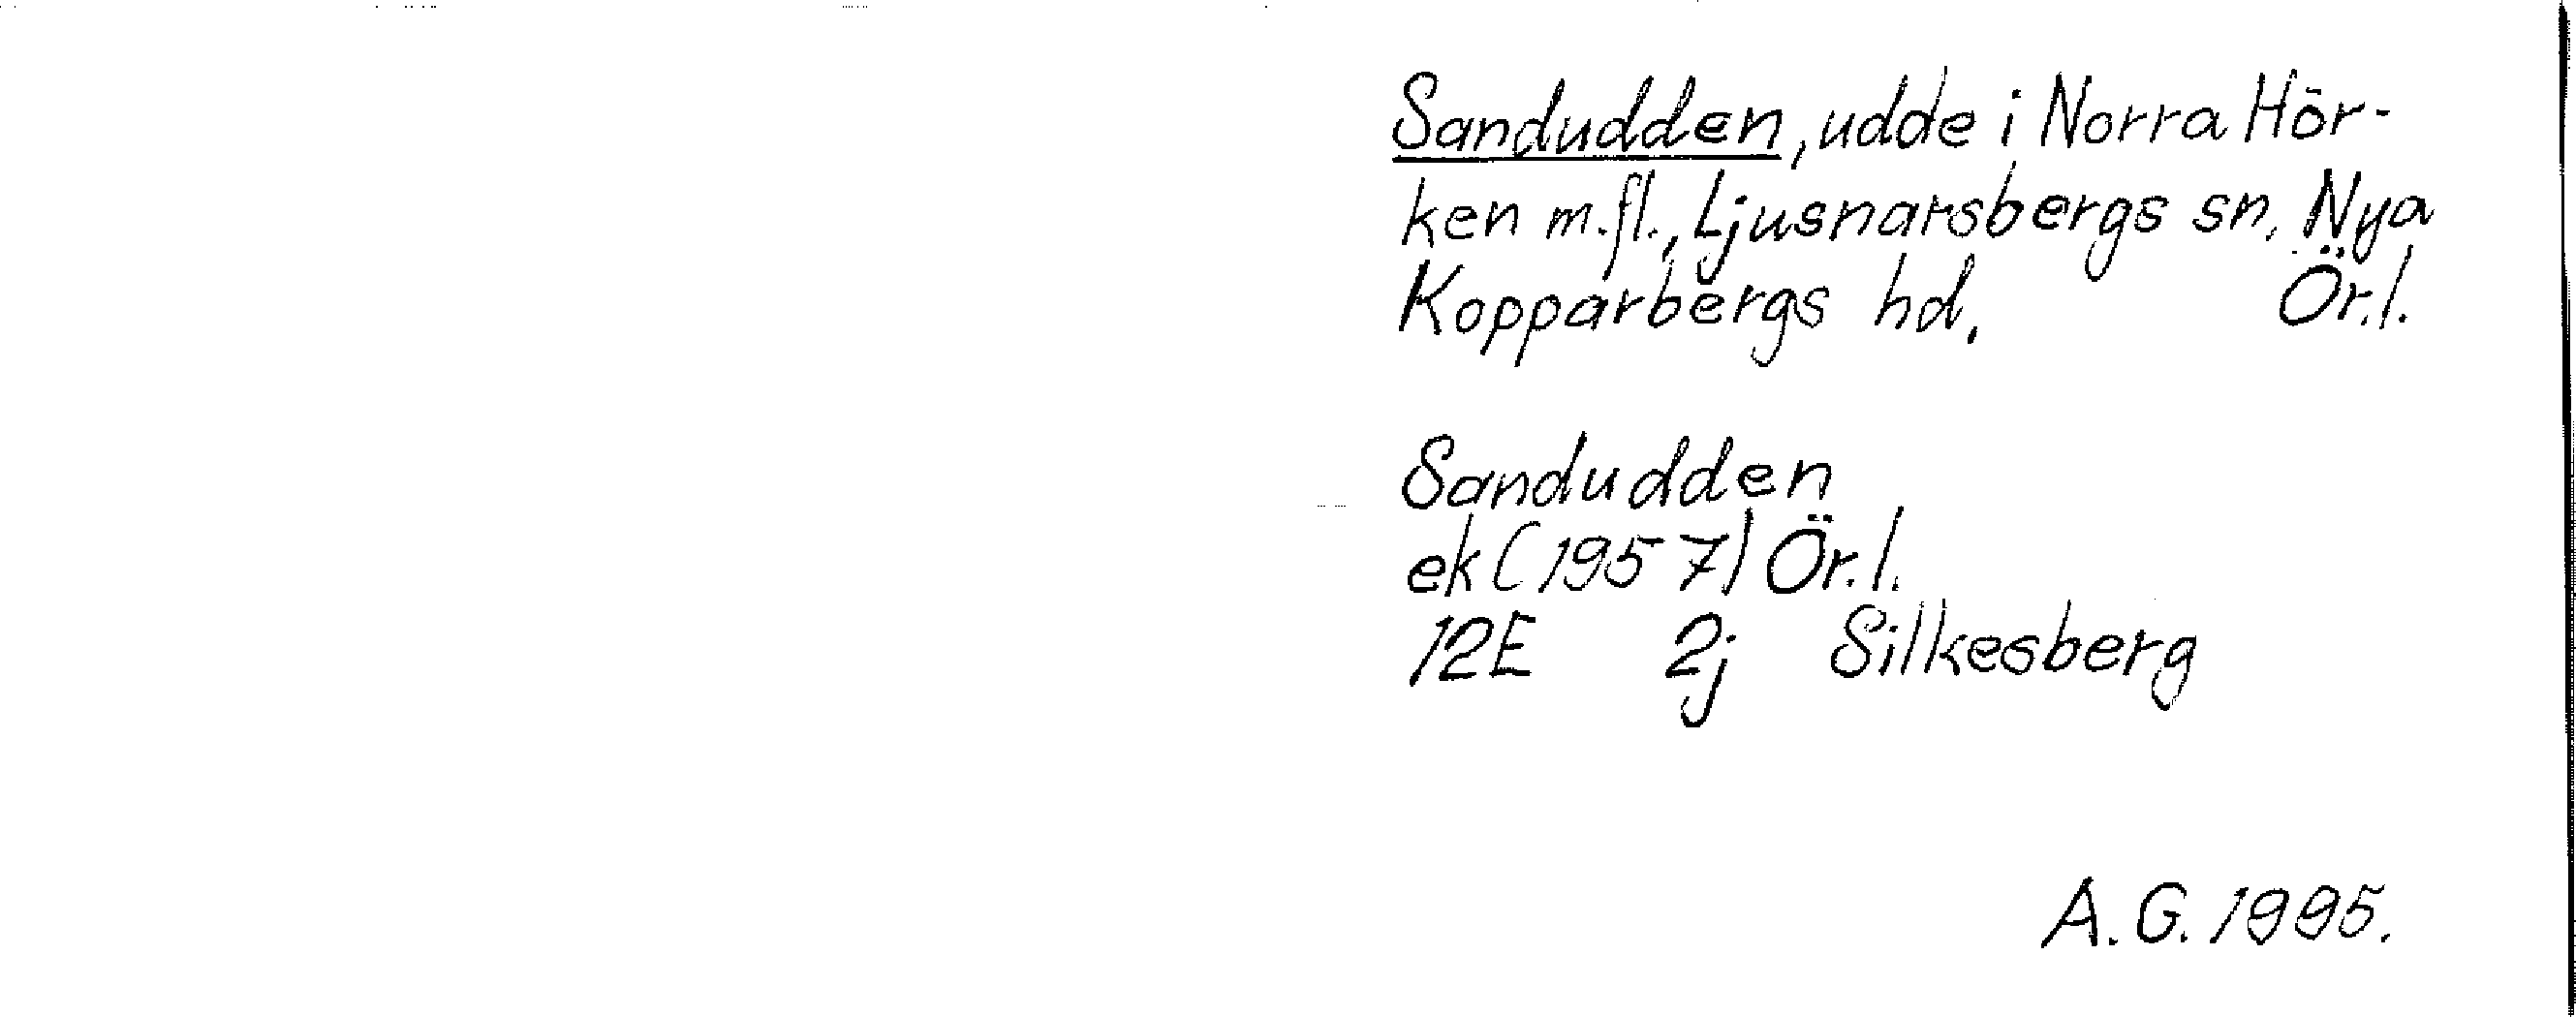 Sandudden, udde i Norra Hör-
ken m.fl., Ljusnarsbergs sn, Nya
Kopparbergs hd. Ör.l.
Sandudden
ek (1957) Ör.l.
12E 2j Silkesberg
A.G. 1995.